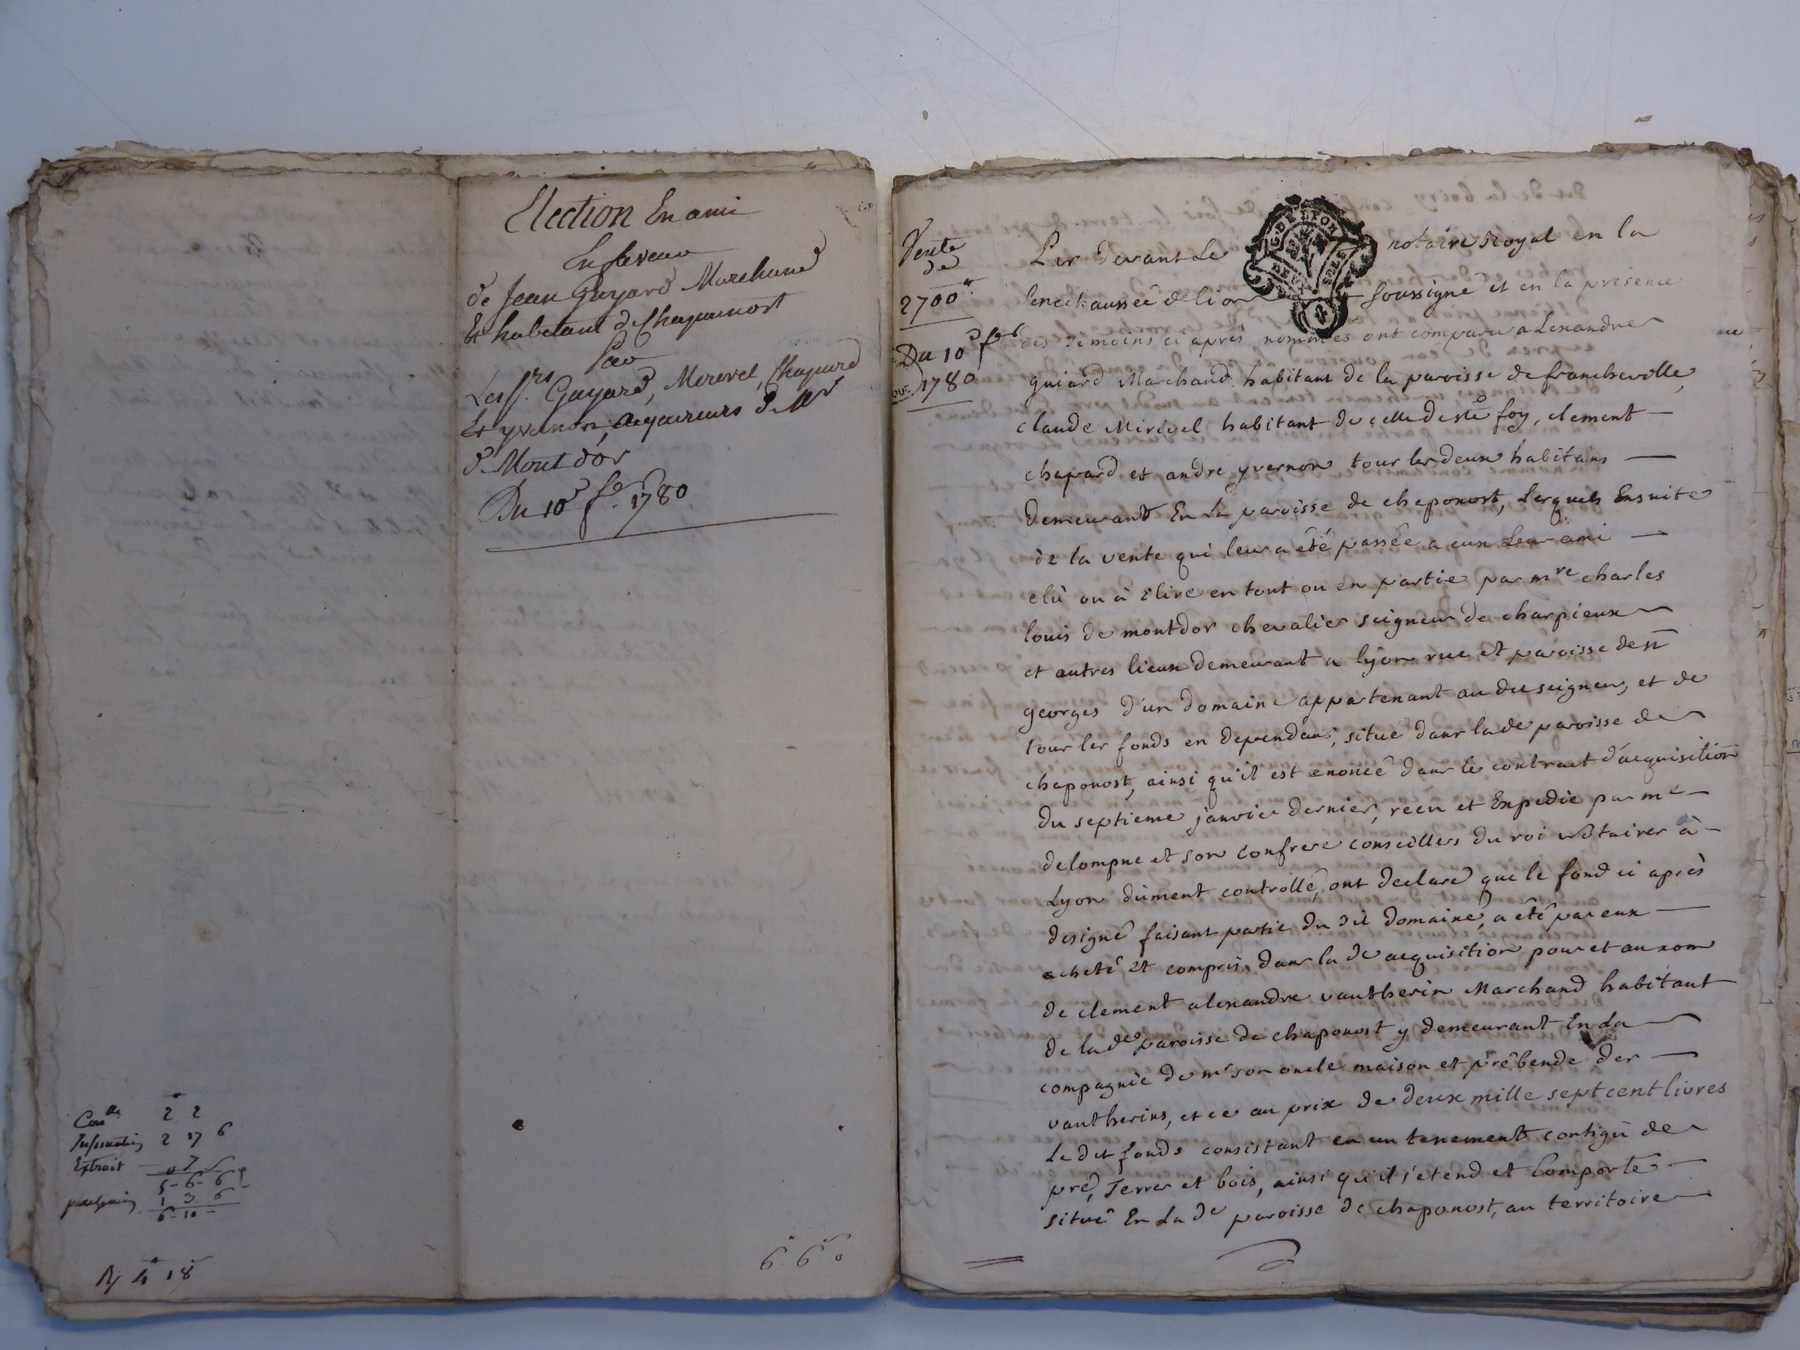 Election En ami
En faveur
de Jean Guyard Marchand
et habitant de Chaponost
Par
Les srs Guyard, Merevel, Chapard
et yvernon, acquereurs de Mr
de Mont dor
Du 10e fer. 1780
Conlle 2 2
Insinuation 2 17 6
Extrait
5 6 6
1 3 6
6 10
R 4 18
6 6 0
Vente
de
2700
Du 10e fer
1780
Par devant Le notaire royal en la
senechaussée de lion soussigné et en la presence
des temoins ci après nommés ont comparu alexandre
guiard Marchand habitant de la paroisse de francheville,
claude Mirevel habitant de celle de ste foy, clement
chapard et andre yvernon tous les deux habitans
demeurant En La paroisse de chaponost, Lesquels Ensuite
de la vente qui leur a été passée a eux Leur ami
elû ou à Elire en tout ou en partie par mre charles
louis de montdor chevalier seigneur de charpieux
et autres lieux demeurant a lyon rue et paroisse de st
georges d'un domaine appartenant au du seigneur, et de
tous les fonds en dependans, situé dans lade paroisse de
chaponost, ainsi qu'il est enoncé dans le contract d'acquisition
du septieme janvier dernier, recu et Expedié par me
delompne et son confrere conseillers du roi notaires à
Lyon dûment controllé, ont declaré que le fond ci après
designé faisant partie du dit domaine, a été par eux
acheté et compris dans la de acquisition pour et au nom
de clement alexandre vautherin Marchand habitant
de lade paroisse de chaponost y demeurant En La
compagnie de mr son oncle maison et prébende des
vautherins, et ce au prix de deux mille sept cent livres
Le dit fonds consistant en un tenement contigû de
pré, Terres et bois, ainsi qu'il s'etend et Comporte
situé En La de paroisse de chaponost, au territoire